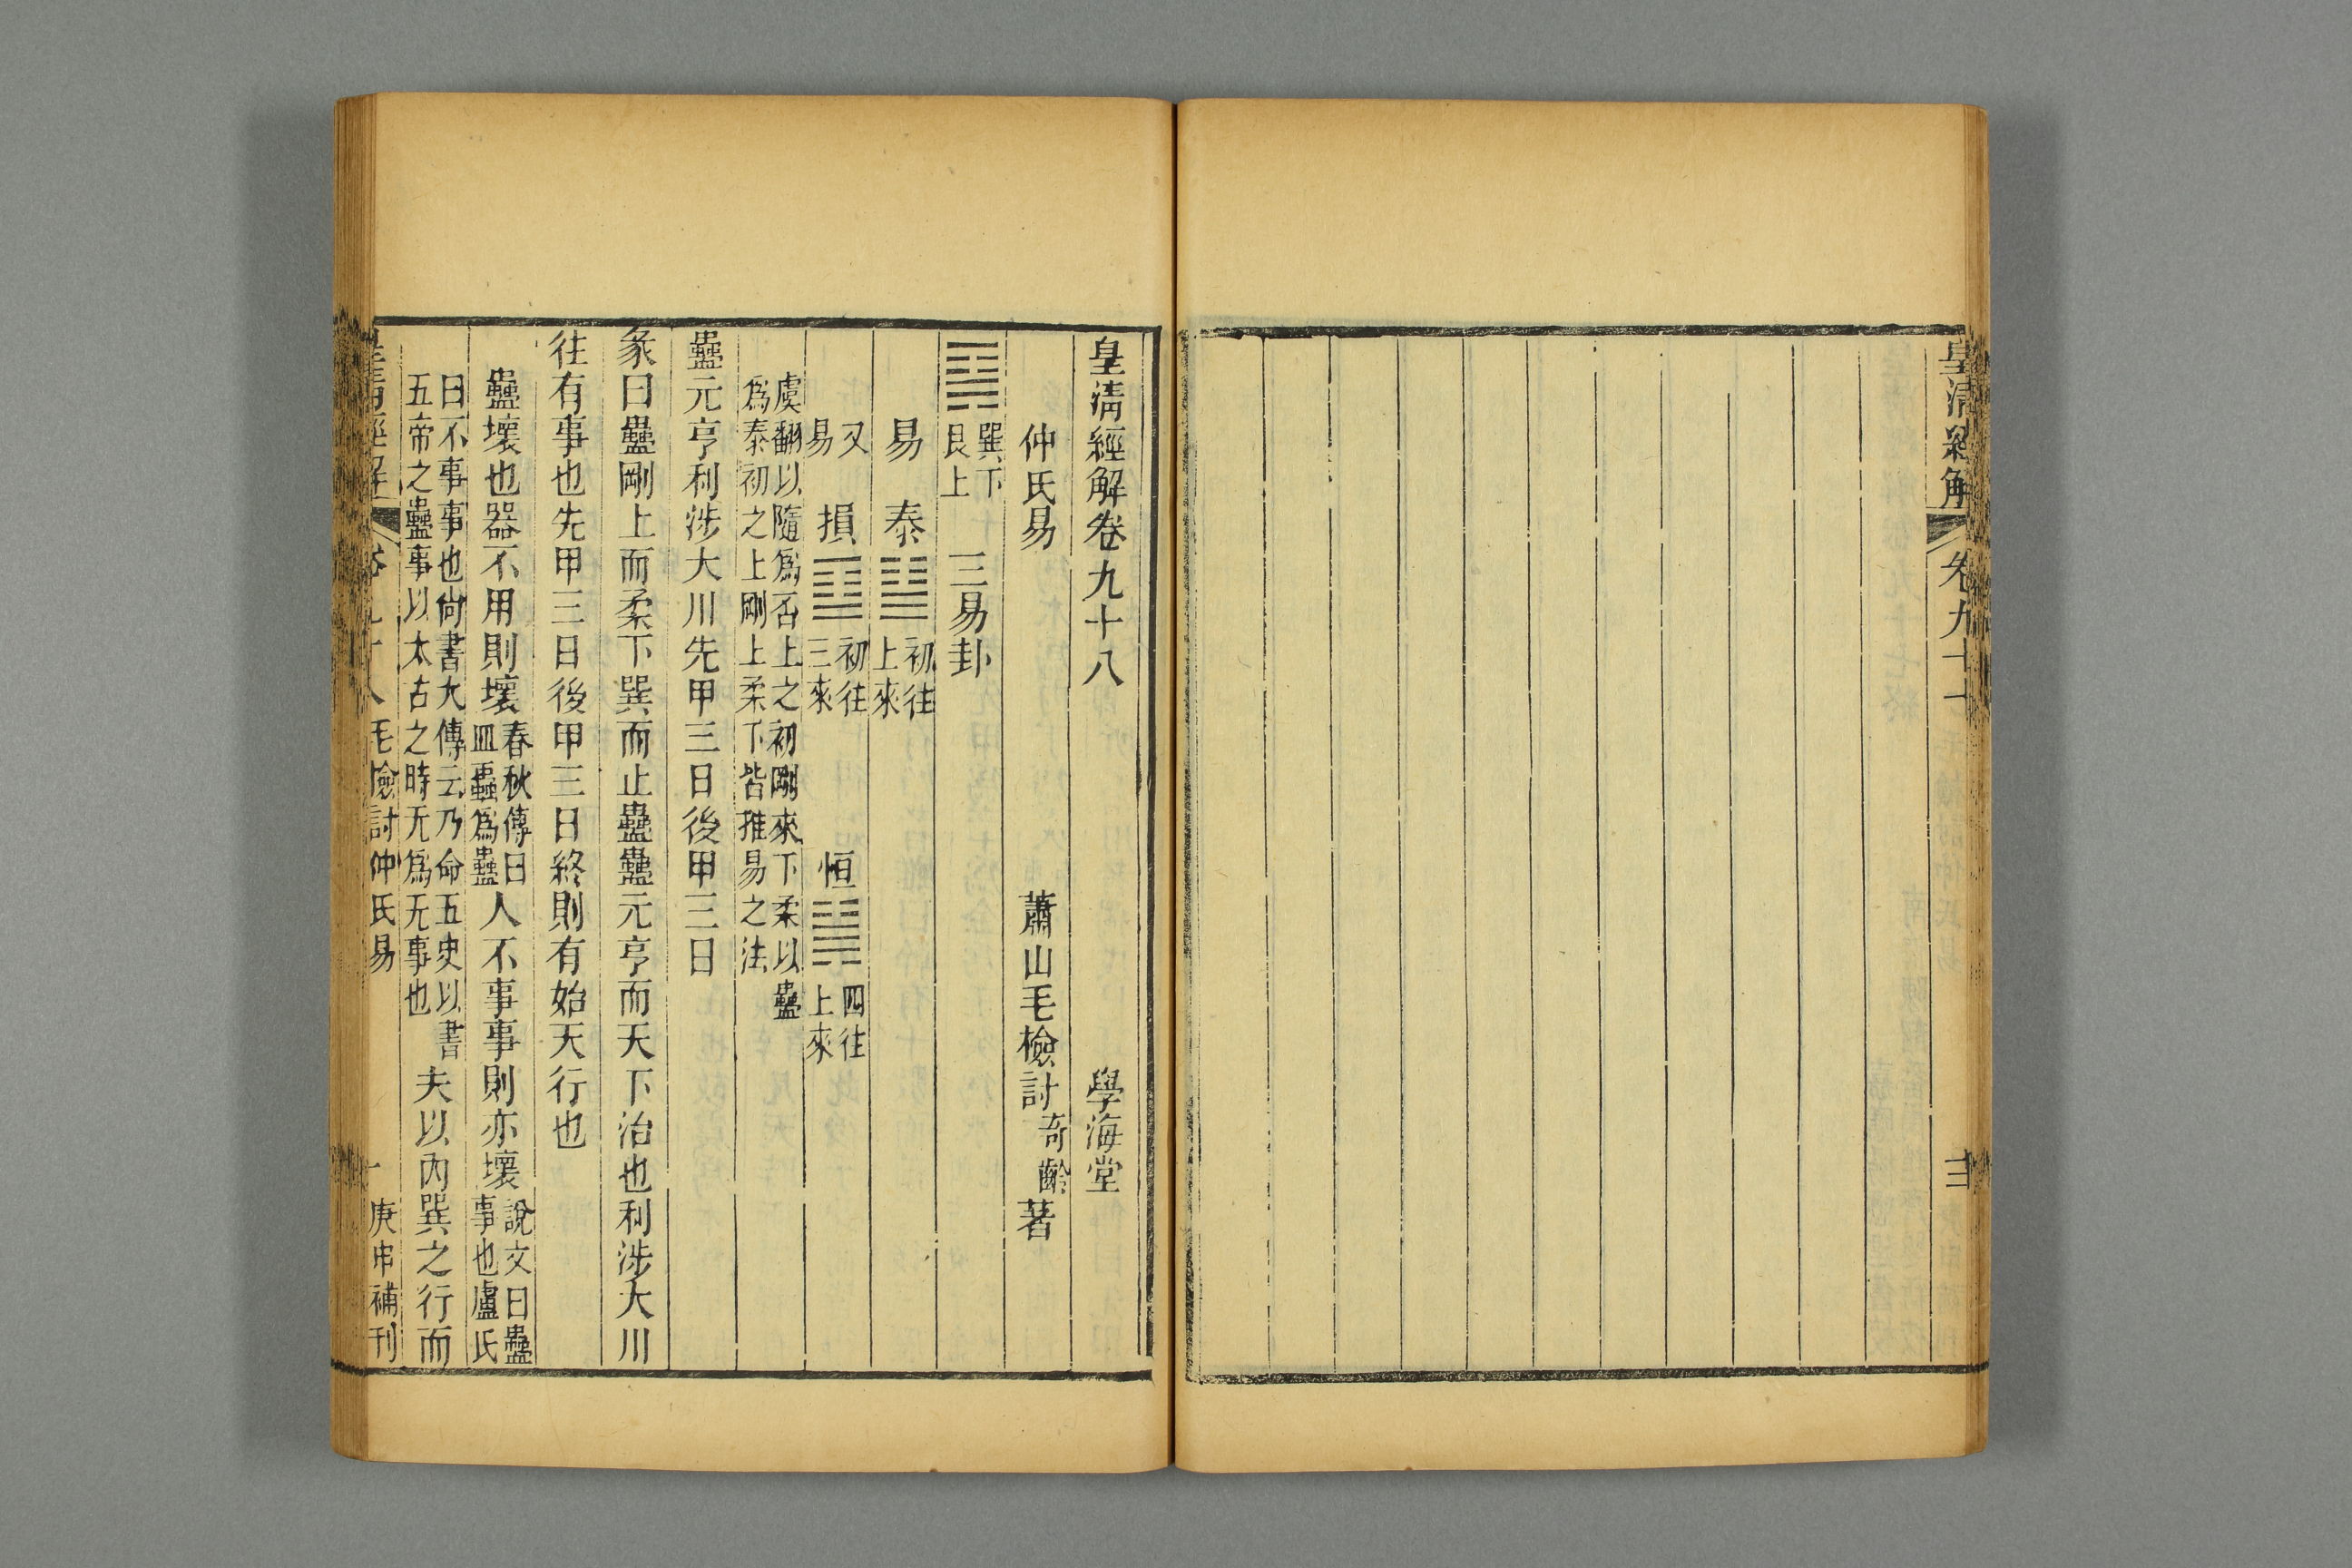 皇清經解
皇清經解卷九十八
學海堂
仲氏易
蕭山毛檢討奇齡著
巽下
艮上
三易卦
易
泰
初往
上來
又
易
損
初往
三來
恒
四往
上來
虞翻以隨爲否上之初剛來下柔以蠱
爲泰初之上剛上柔下皆推易之法
蠱元亨利涉大川先甲三日後甲三日
彖曰蠱剛上而柔下巽而止蠱蠱元亨而天下治也利涉大川
往有事也先甲三日後甲三日終則有始天行也
蠱壞也器不用則壞
春秋傳曰
皿蟲爲蠱
人不事事則亦壞
說文曰蠱
事也盧氏
曰不事事也尙書大傳云乃命五史以書
五帝之蠱事以太古之時无爲无事也
夫以內巽之行而
毛檢討仲氏易
庚申補刊